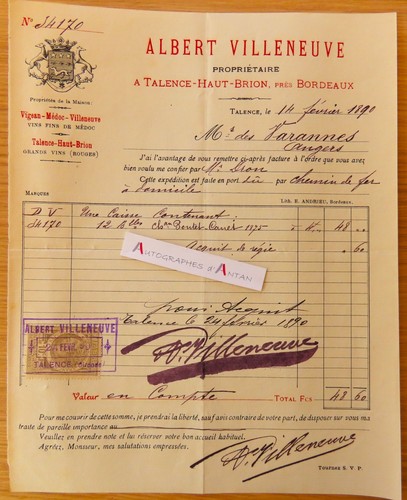 Nº 34170
ALBERT VILLENEUVE
PROPRIÉTAIRE
A TALENCE-HAUT-BRION, PRÈS BORDEAUX
Propriétés de la Maison:
Vigean-Médoc-Villeneuve
VINS FINS DE MÉDOC
Talence-Haut-Brion
GRANDS VINS (ROUGES)
TALENCE, LE 14 février 1890
Mʳ des Varannes
Angers
J'ai l'avantage de vous remettre ci-après facture à l'ordre que vous avez
bien voulu me confier par Mʳ Dion
Cette expédition est faite en port dû par chemin de fer
à domicile
MARQUES
Lith. E. ANDRIEU, Bordeaux
D V Une Caisse Contenant:
34170 12 Blles Chau Pontet-Canet 1875 à 4f. 48 "
Acquit de régie " 60
AUTOGRAPHES d'ANTAN
pour Acquit
Talence le 24 février 1890
A. Villeneuve
ALBERT VILLENEUVE
24 FEVR. 90
TALENCE (Gironde)
Valeur en Compte TOTAL FCS 48 60
Pour me couvrir de cette somme, je prendrai la liberté, sauf avis contraire de votre part, de disposer sur vous ma
traite de pareille importance au
Veuillez en prendre note et lui réserver votre bon accueil habituel.
Agréez, Monsieur, mes salutations empressées.
A. Villeneuve
TOURNEZ S. V. P.